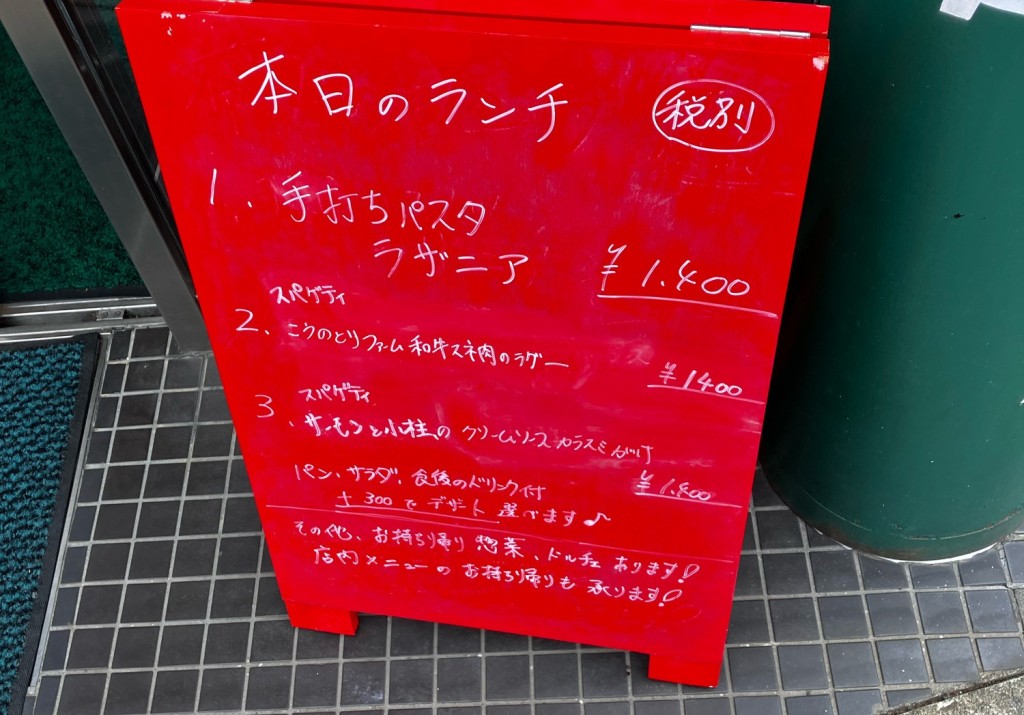 本日のランチ 税別
1. 手打ちパスタ
ラザニア ¥1.400
スパゲティ
2. こうのとりファーム和牛スネ肉のラグー
¥1400
スパゲティ
3. サーモンと小柱のクリームソースカラスミがけ
¥1.400
パン、サラダ、食後のドリンク付
+300でデザート選べます♪
その他、お持ち帰り惣菜、ドルチェあります!
店内メニューのお持ち帰りも承ります!